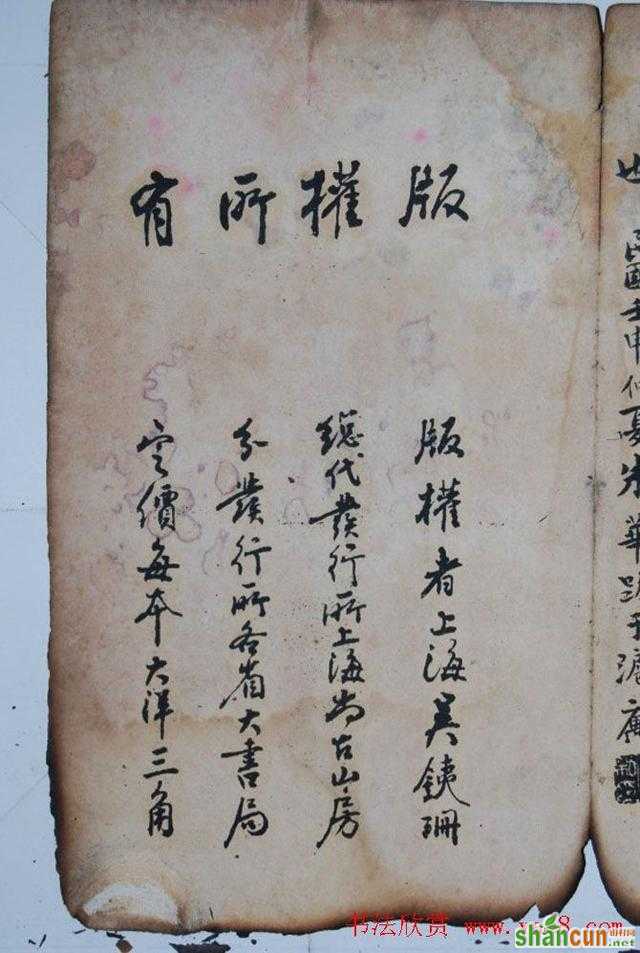 版權所有
版權者上海吳銕珊
總代發行所上海尚古山房
分發行所各省大書局
定價每本大洋三角
民國壬申仲夏朱華
也
书法欣赏 www.
shancun
.net